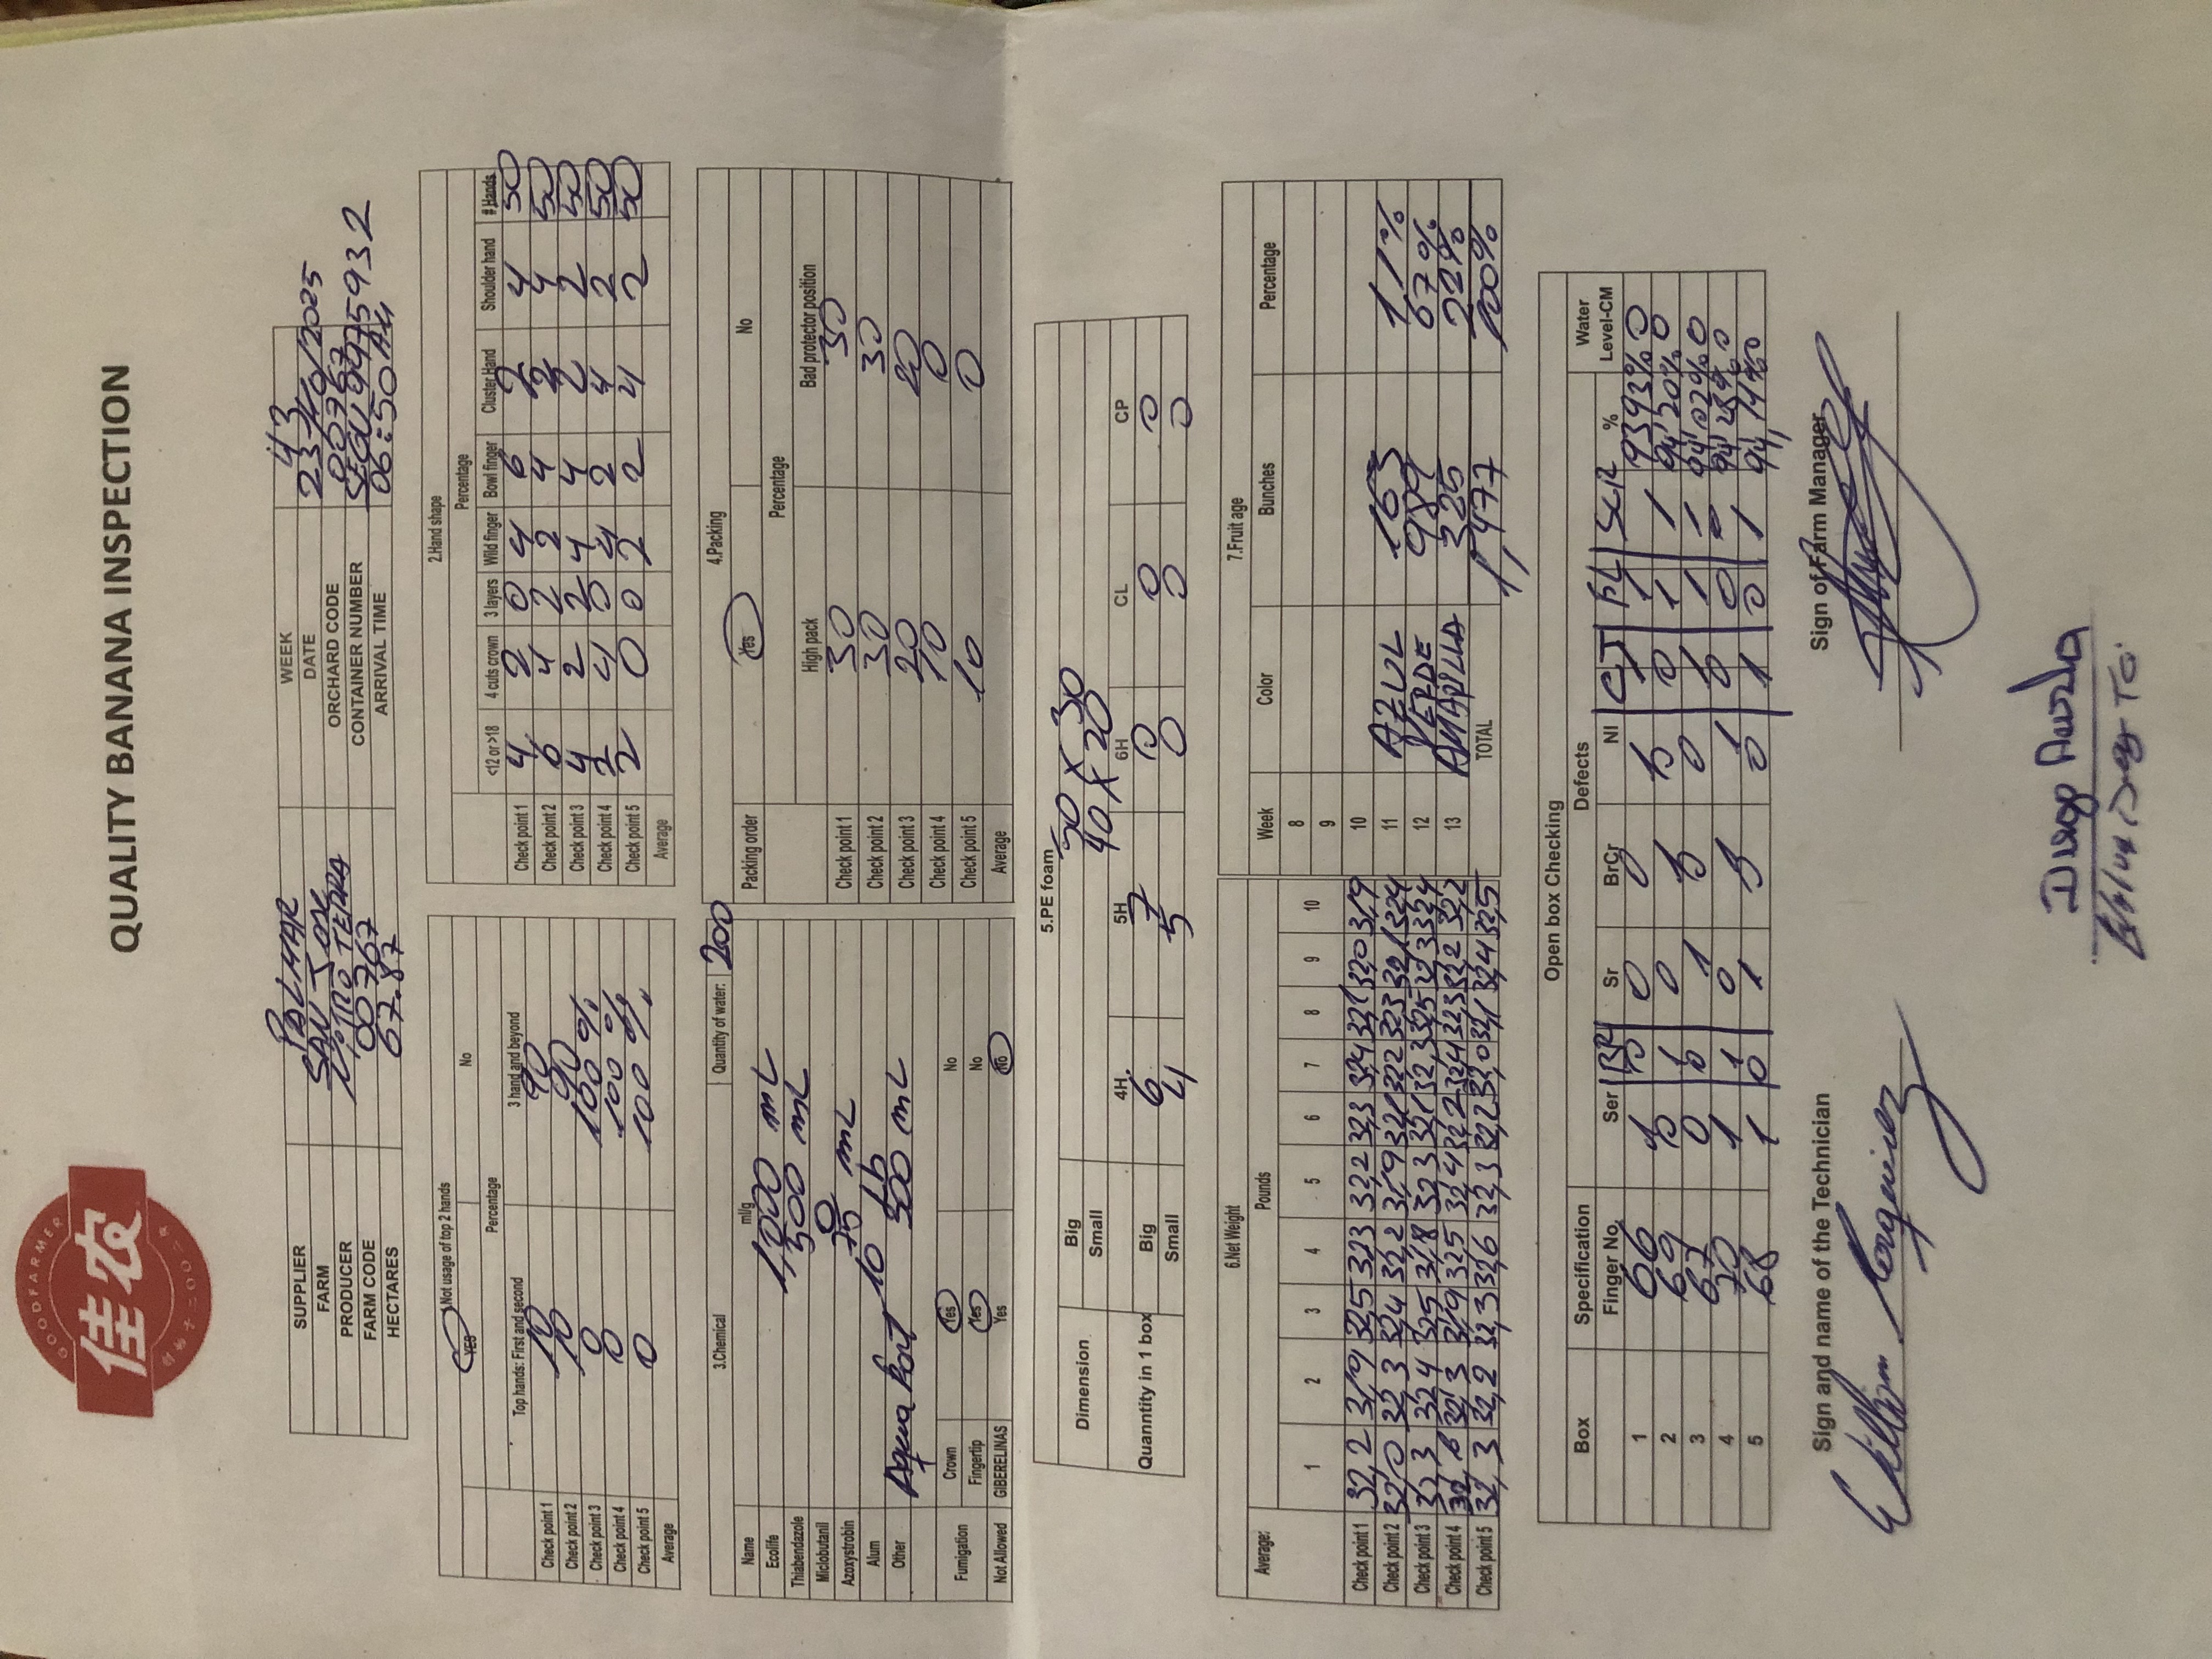 GOODFARMER
佳农
创始于二〇〇二年
QUALITY BANANA INSPECTION
SUPPLIER PALMAR WEEK 43
FARM SAN JOSE DATE 23/10/2025
PRODUCER NITRO TERRA ORCHARD CODE 00767
FARM CODE 00767 CONTAINER NUMBER SEGU 9975932
HECTARES 67.87 ARRIVAL TIME 06:50 AM
1.Not usage of top 2 hands
YES No
Percentage
Top hands: First and second 3 hand and beyond
Check point 1 10 90
Check point 2 10 90
Check point 3 0 100 %
Check point 4 0 100 %
Check point 5 0 100 %
Average
2.Hand shape
Percentage
<12 or >18 4 cuts crown 3 layers Wild finger Bowl finger Cluster Hand Shoulder hand # Hands
Check point 1 4 2 0 4 6 2 4 50
Check point 2 6 4 2 2 4 2 4 50
Check point 3 4 2 2 4 4 2 2 50
Check point 4 2 4 0 4 2 4 2 50
Check point 5 2 0 0 2 2 4 2 50
Average
3.Chemical Quantity of water: 200
Name ml/g
Ecolife 1,000 mL
Thiabendazole 500 mL
Miclobutanil 0
Azoxystrobin 75 mL
Alum 10 Lb
Other Aqua 500 mL
Fumigation Crown Yes No
Fingertip Yes No
Not Allowed GIBERELINAS Yes No
4.Packing
Packing order Yes No
Percentage
High pack Bad protector position
Check point 1 30 30
Check point 2 30 30
Check point 3 20 20
Check point 4 10 0
Check point 5 10 0
Average
5.PE foam
Dimension Big 50 x 30
Small 40 x 20
4H. 5H 6H CL CP
Quanntity in 1 box Big 6 7 0 0 0
Small 4 5 0 0 0
6.Net Weight
Average: Pounds
1 2 3 4 5 6 7 8 9 10
Check point 1 32,2 31,9 32,5 32,3 32,2 32,3 32,4 32,1 32,0 31,9
Check point 2 32,0 32,3 32,4 32,2 31,9 32,1 32,2 32,3 32,1 32,4
Check point 3 32,3 32,4 32,5 31,8 32,3 32,1 32,3 32,5 32,3 32,4
Check point 4 32,6 32,3 31,9 32,5 32,4 32,2 32,4 32,3 32,2 32,2
Check point 5 32,3 32,2 32,3 32,6 32,3 32,2 32,0 32,1 32,4 32,5
7.Fruit age
Week Color Bunches Percentage
8
9
10
11 AZUL 163 11%
12 VERDE 989 67%
13 AMARILLA 325 22%
TOTAL 1,477 100%
Open box Checking
Box Specification Defects Water
Finger No. Ser BR Sr BrCr NI CJ FL SCR % Level-CM
1 66 1 0 0 0 1 1 93,93% 0
2 69 0 1 0 1 0 0 1 1 94,20% 0
3 67 0 0 1 0 0 1 1 1 94,02% 0
4 70 1 1 0 1 1 0 0 0 94,28% 0
5 68 1 0 1 0 0 1 0 1 94,11% 0
Sign and name of the Technician Sign of Farm Manager
William
Diego